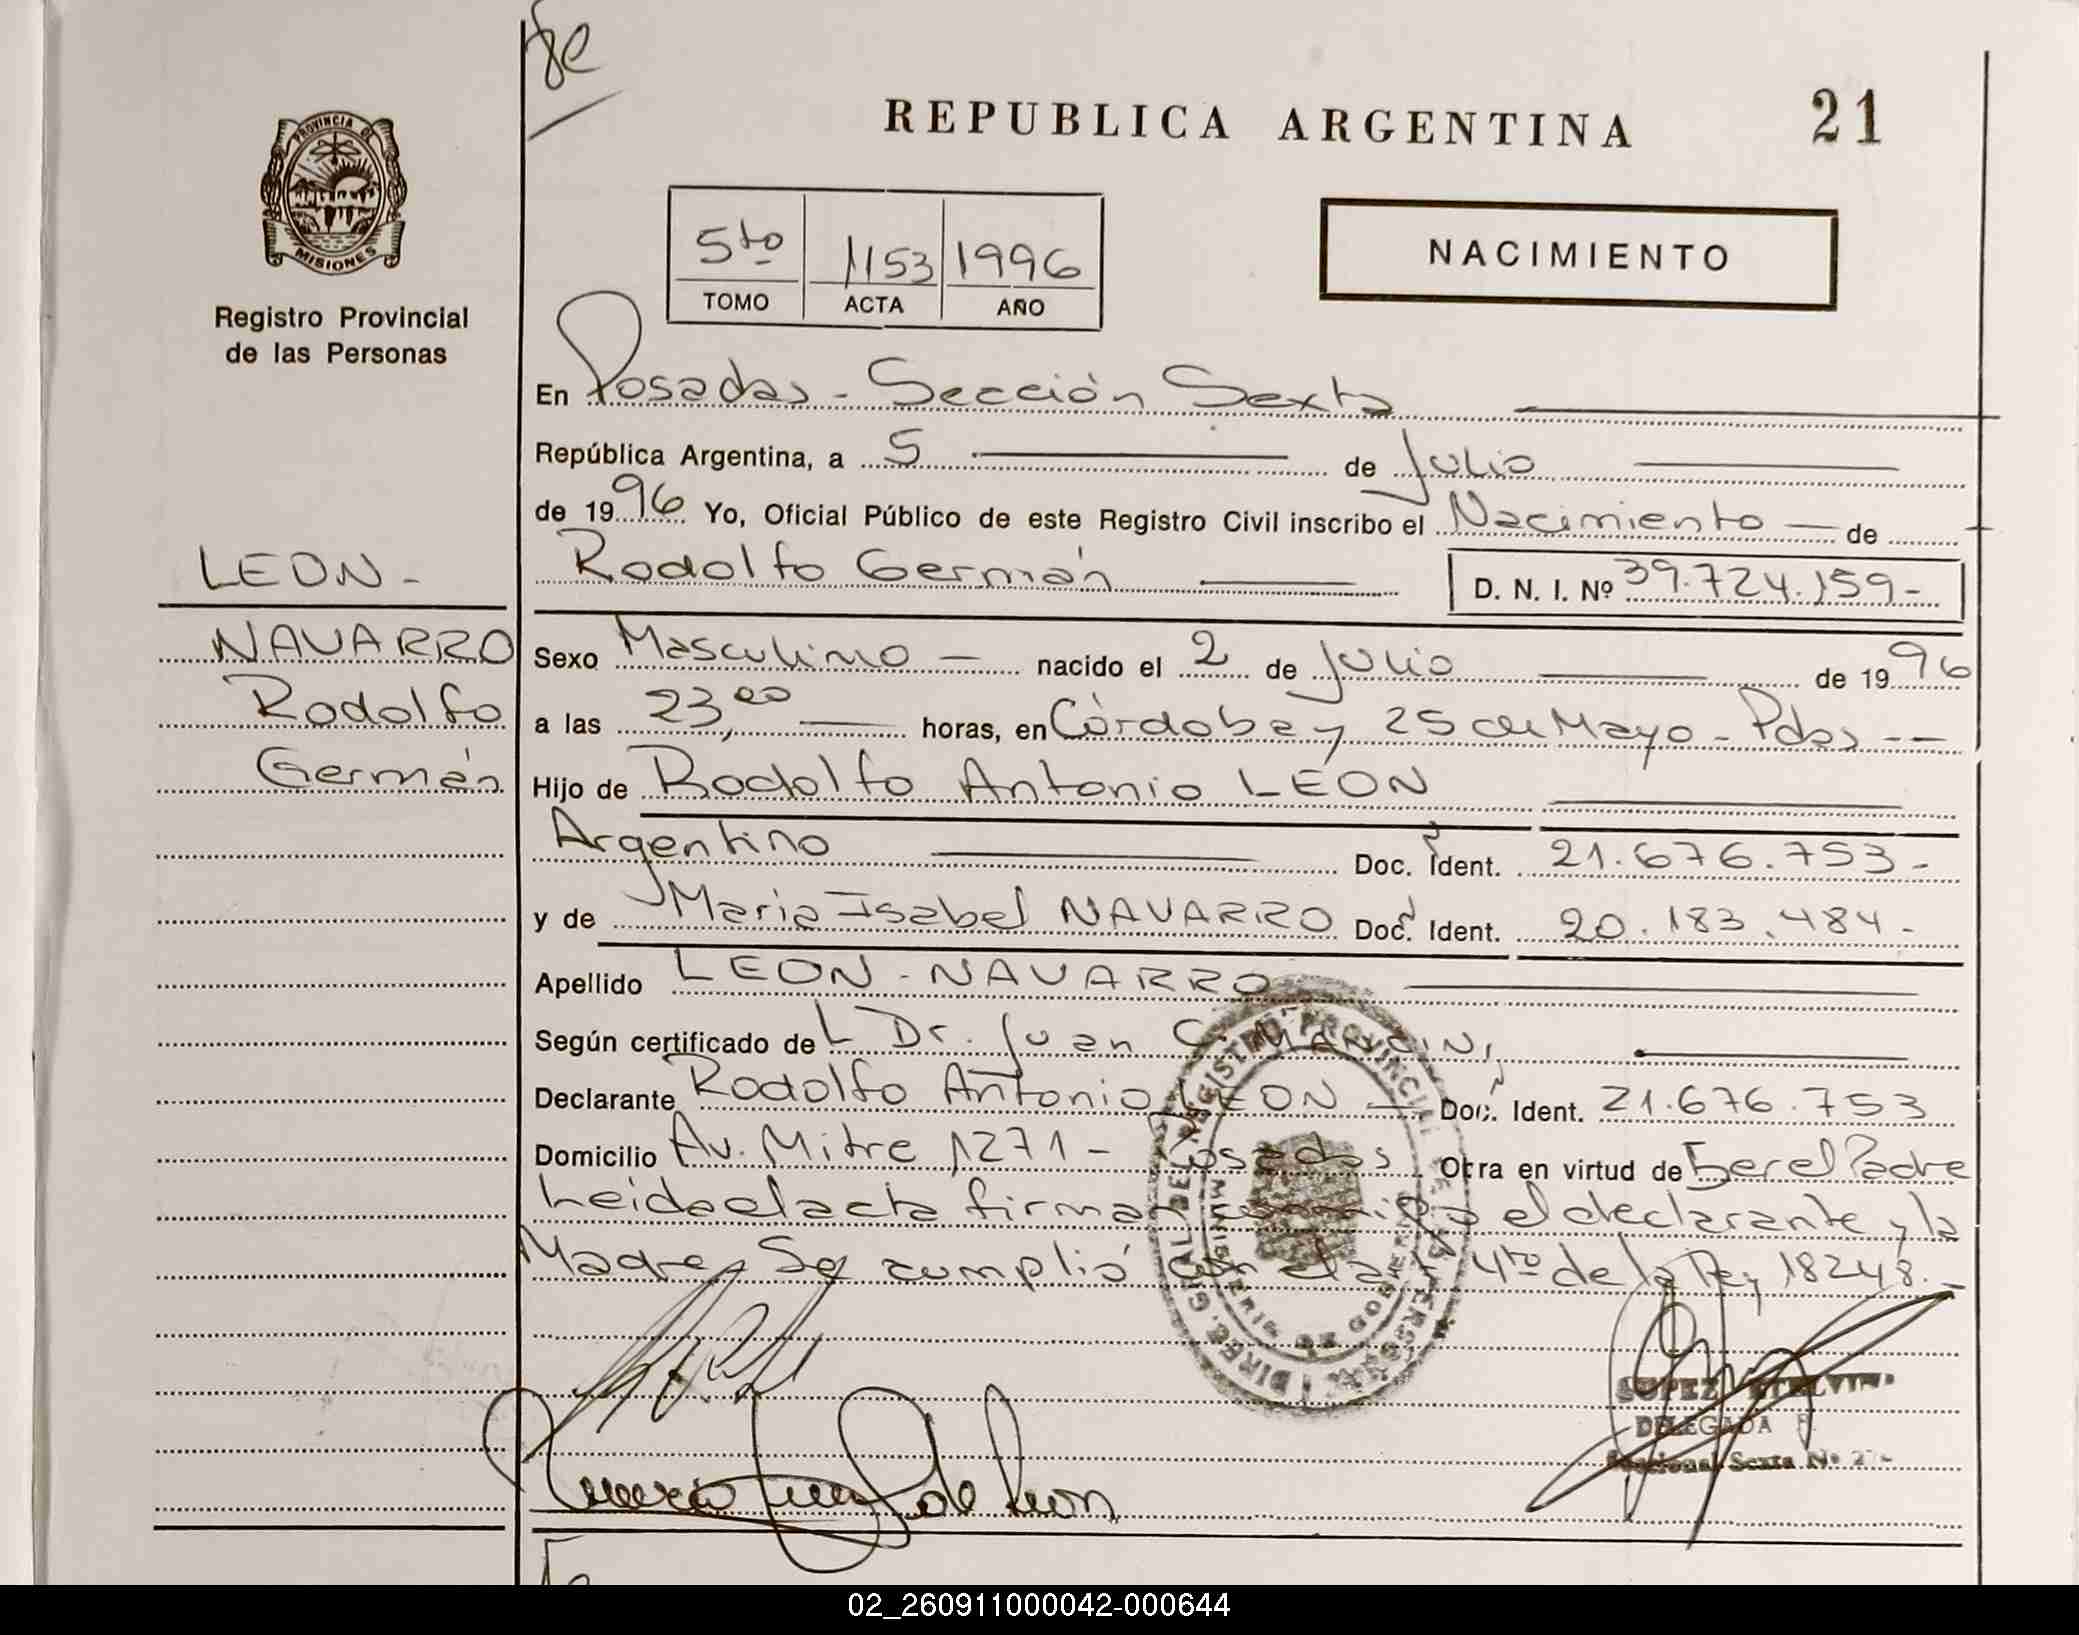 REPUBLICA ARGENTINA 21
PROVINCIA DE
MISIONES
Registro Provincial
de las Personas
5to 1153 1996
TOMO ACTA AÑO
NACIMIENTO
En Posadas - Sección Sexta
República Argentina, a 5 de Julio
de 1996 Yo, Oficial Público de este Registro Civil inscribo el Nacimiento de
Rodolfo Germán D. N. I. Nº 39.724.159-
LEON -
NAVARRO
Rodolfo
Germán
Sexo Masculino - nacido el 2 de Julio de 1996
a las 23,00 horas, en Córdoba y 25 de Mayo - Pdas --
Hijo de Rodolfo Antonio LEON
Argentino Doc. Ident. 21.676.753-
y de Maria Isabel NAVARRO Doc. Ident. 20.183.484-
Apellido LEON - NAVARRO
Según certificado de L Dr. Juan C.
Declarante Rodolfo Antonio LEON - Doc. Ident. 21.676.753
Domicilio Av. Mitre 1271 - Posadas Obra en virtud de Ser el Padre
Leida el acta firman conmigo el declarante y la
Madre, Se cumplió con el art 4to de la Ley 18248.-
DELEGADA
Seccional Sexta Nº
02_260911000042-000644